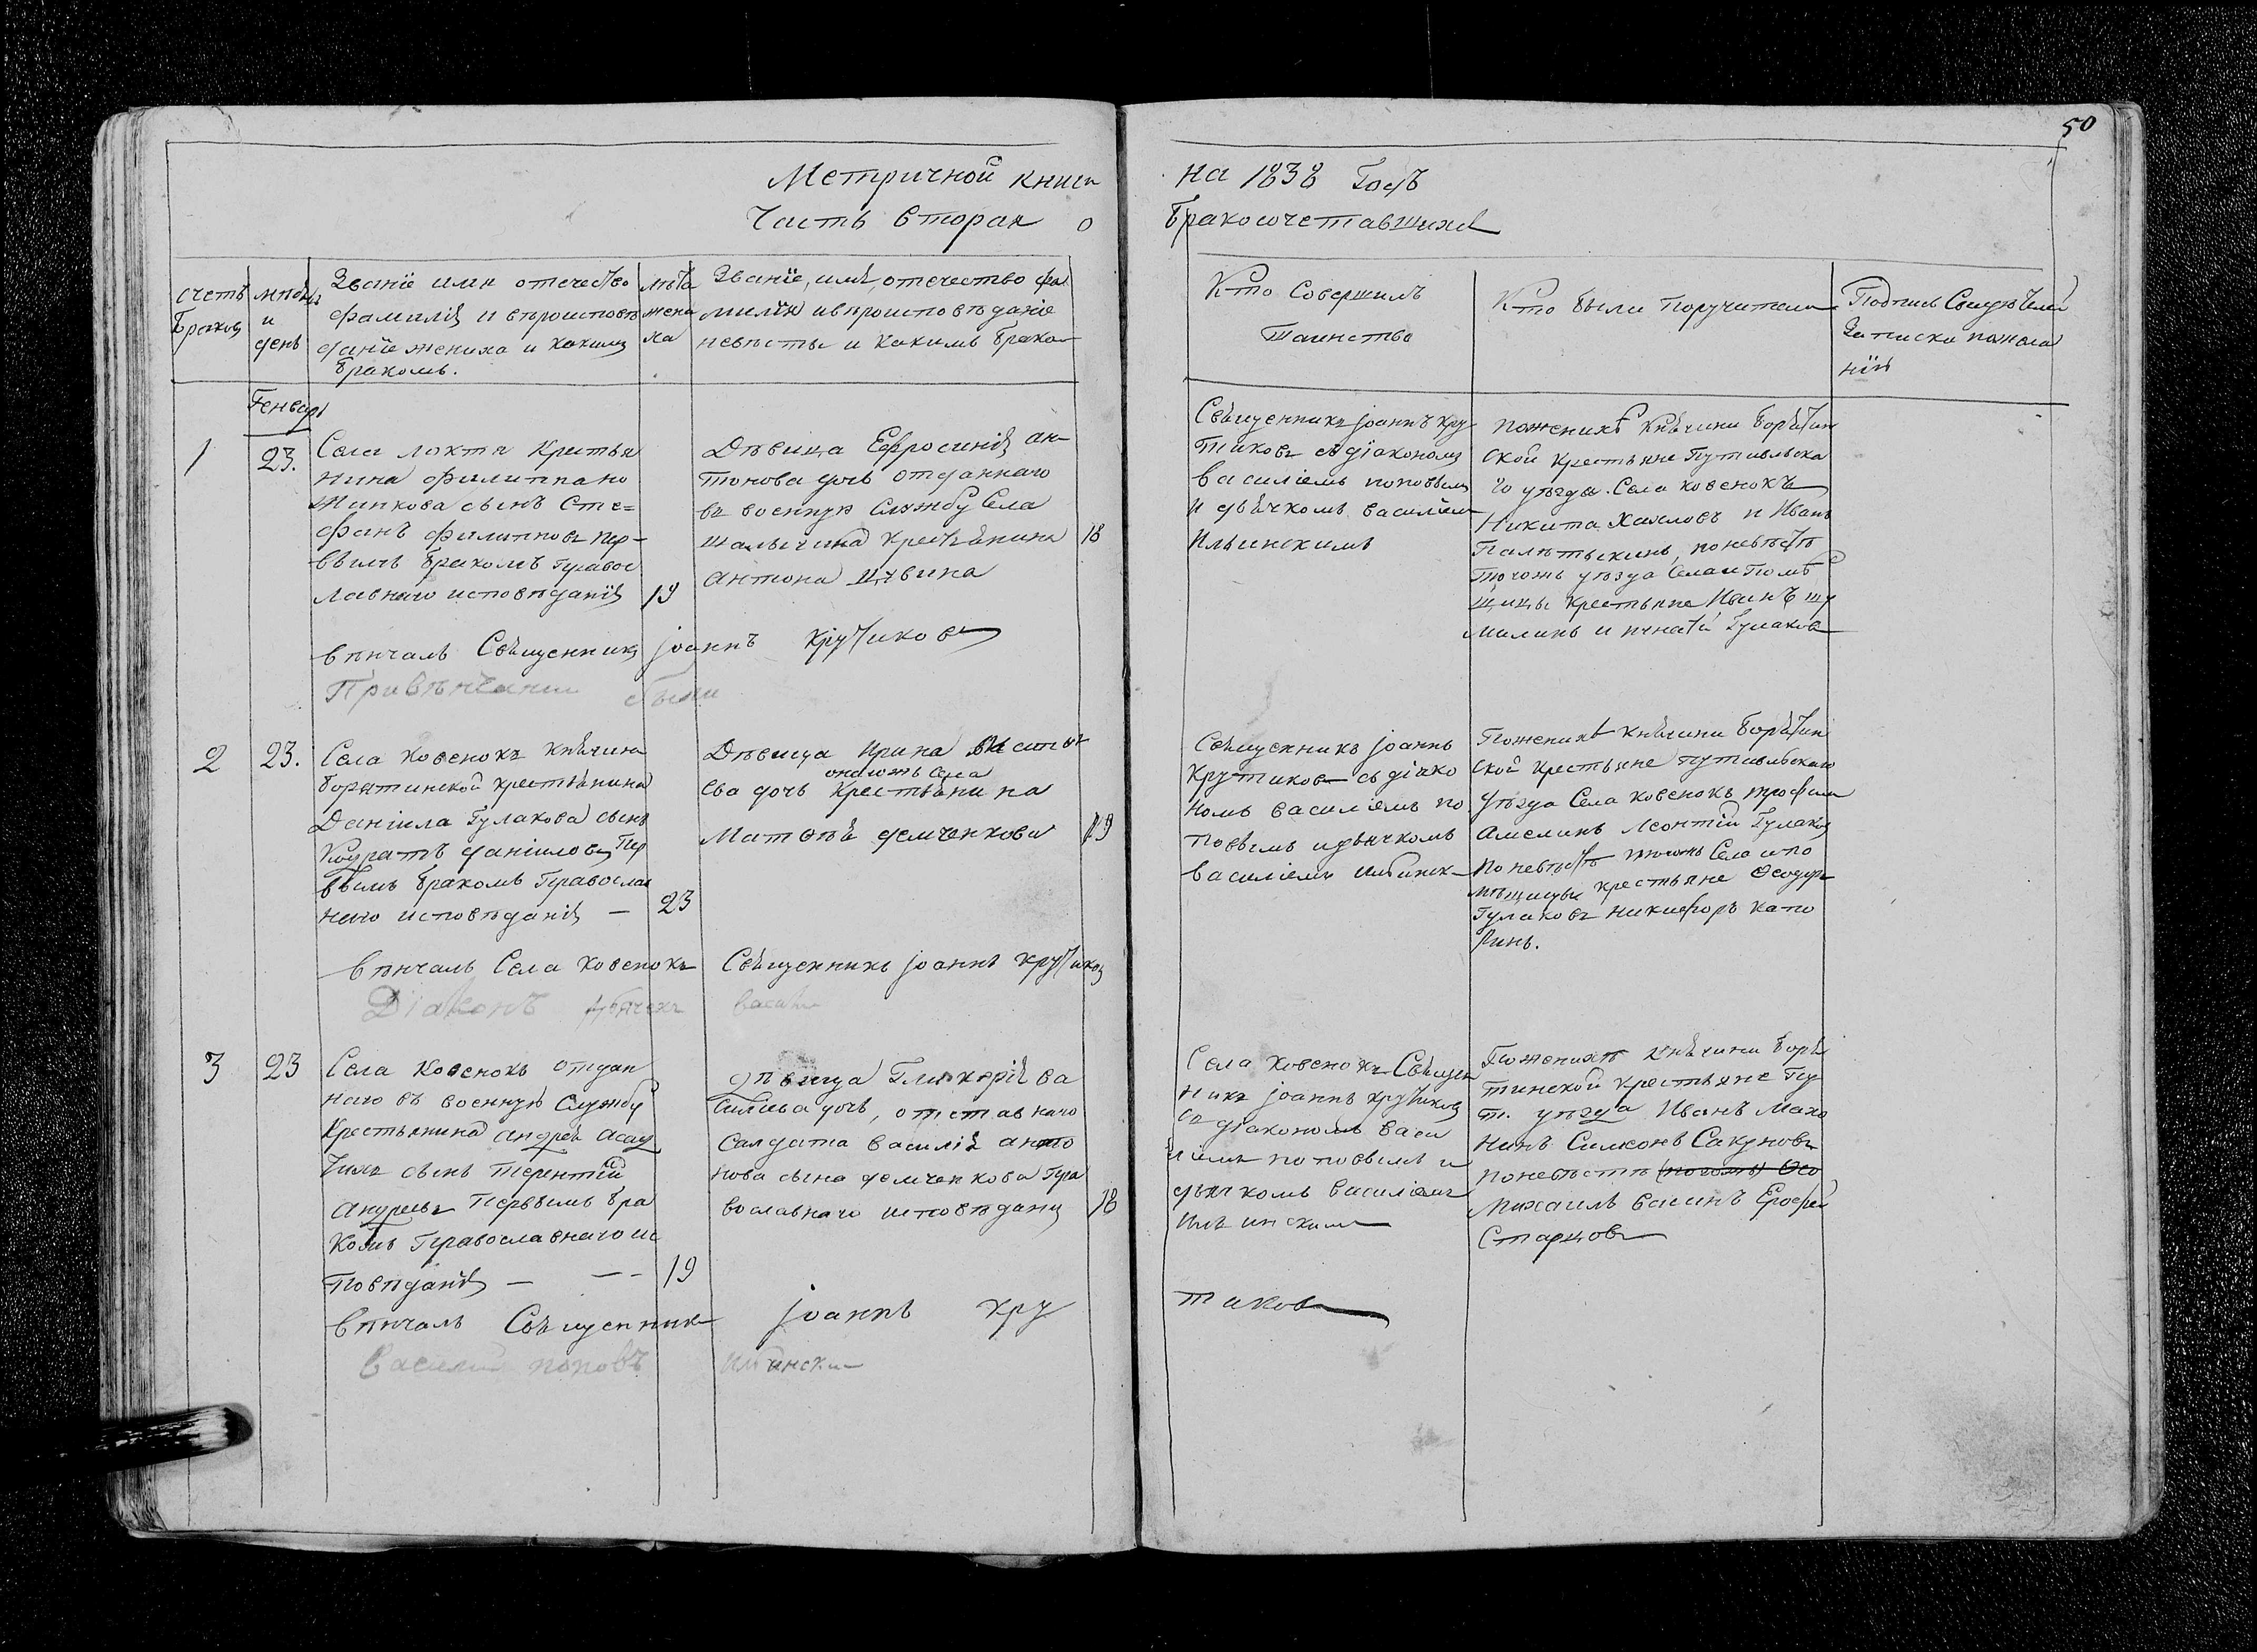 50
Метричной книги
Часть вторая о
на 1838 Годъ
бракосочетавшихся
счетъ
браковъ
мѣсяцъ
и
день
Званїе имя отечество
фамилїя и вѣроисповѣ
данїе жениха и какимъ
бракомъ.
лѣта
жени
ха
Званїе, имя, отечество фа
милїя и вѣроисповѣданїе
невѣсты и какимъ бракомъ
Кто Совершилъ
Таинство
Кто были Поручители
Подпись Свидѣтелей
Записки по
Генваря
1
23.
Села Локтя Крестья
нина Филиппа по
Жинкова сынъ Сте=
фанъ Филипповъ пер-
вымъ бракомъ Правос
лавнаго исповѣданїя
19
Дѣвица Ефросинїя ан-
тонова дочь отданнаго
въ военную Службу Села
Шалыгина крестьянина
антона
18
Священникъ Іоаннъ кру
тиковъ съ дїакономъ
Василїемъ поповымъ
и дьячкомъ василїемъ
Ильинскимъ
поженихѣ Княгини Борятин
ской крестьяне Путивльска
го уѣзда Села ховенокъ
Никита и Иванъ
поневѣстѣ
тогожъ уѣзда Села и Помѣ
щицы крестьяне Иванъ шу
милинъ и игнатїй Гулаковъ
вѣнчалъ Священникъ Іоаннъ Крутиковъ
Привѣнчании были
2
23.
Села Ховенокъ Княгини
борятинской крестьянина
Данїила Гулакова сынъ
Кодратъ данїиловъ Пер
вымъ бракомъ Православ
наго исповѣданїя —
23
Дѣвица Ирина
онагожъ Села
ева дочь крестьянина
Матфѣя демченкова
19
Священникъ Іоаннъ
Крутиковъ съ дїако
номъ василїемъ по
повымъ и дьячкомъ
василїемъ ильинск
Поженихѣ Княгини Борятин
ской крестьяне путивльскаго
уѣзда Села ховенокъ трофимъ
Амелинъ Леонтїй Гулаковъ
поневѣстѣ тогожъ Села и по
мѣщицы крестьяне Ѳеодоръ
Гулаковъ Никифоръ Като
ринъ.
вѣнчалъ Села ховенокъ Священникъ Іоаннъ крутиковъ
Дїаконъ дьячекъ васили
3
23
Села Ховенокъ отдан
наго въ военную Службу
Крестьянина андрея
сынъ Терентїй
андреевъ Первымъ бра
комъ Православнаго ис
повѣданїя —
19
дѣвица Гликерїя ва
сильева дочь, отставнаго
Салдата василїя анто
нова сына демченкова Пра
вославнаго исповѣданїя
18
Села ховенокъ Священ
никъ Іоаннъ крутиковъ
съ дїакономъ васи
лїемъ поповымъ и
дьячкомъ василїемъ
ильинскимъ
Поженихѣ княгини боря
тинской крестьяне Пу
т. уѣзда Иванъ Махо
нинъ Симеонъ Сакуновъ
поневѣстѣ (тогожъ) Ѳео
Михаилъ васинъ Ерофей
Старцовъ
вѣнчалъ Священникъ Іоаннъ кру
тиковъ
Василий поповъ Ильински